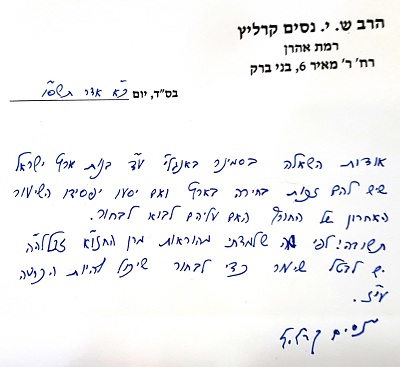 הרב ש. י. נסים קרליץ
רמת אהרן
רח' ר' מאיר 6, בני ברק
בס"ד, יום כ"א אדר תשס"ו
אודות השאלה בסמינר באנגלי' על בנות ארץ ישראל
שיש להם זכות בחירה בארץ ואם יסעו יפסידו השיעור
האחרון של החורף האם עליהם לבוא לבחור.
תשובה: לפי מה שלמדתי מהוראות מרן החזו"א זצללה"ה
יש לבטל שיעור כדי לבחור שיכול להיות הכרעה
עי"ז.
נסים קרליץ